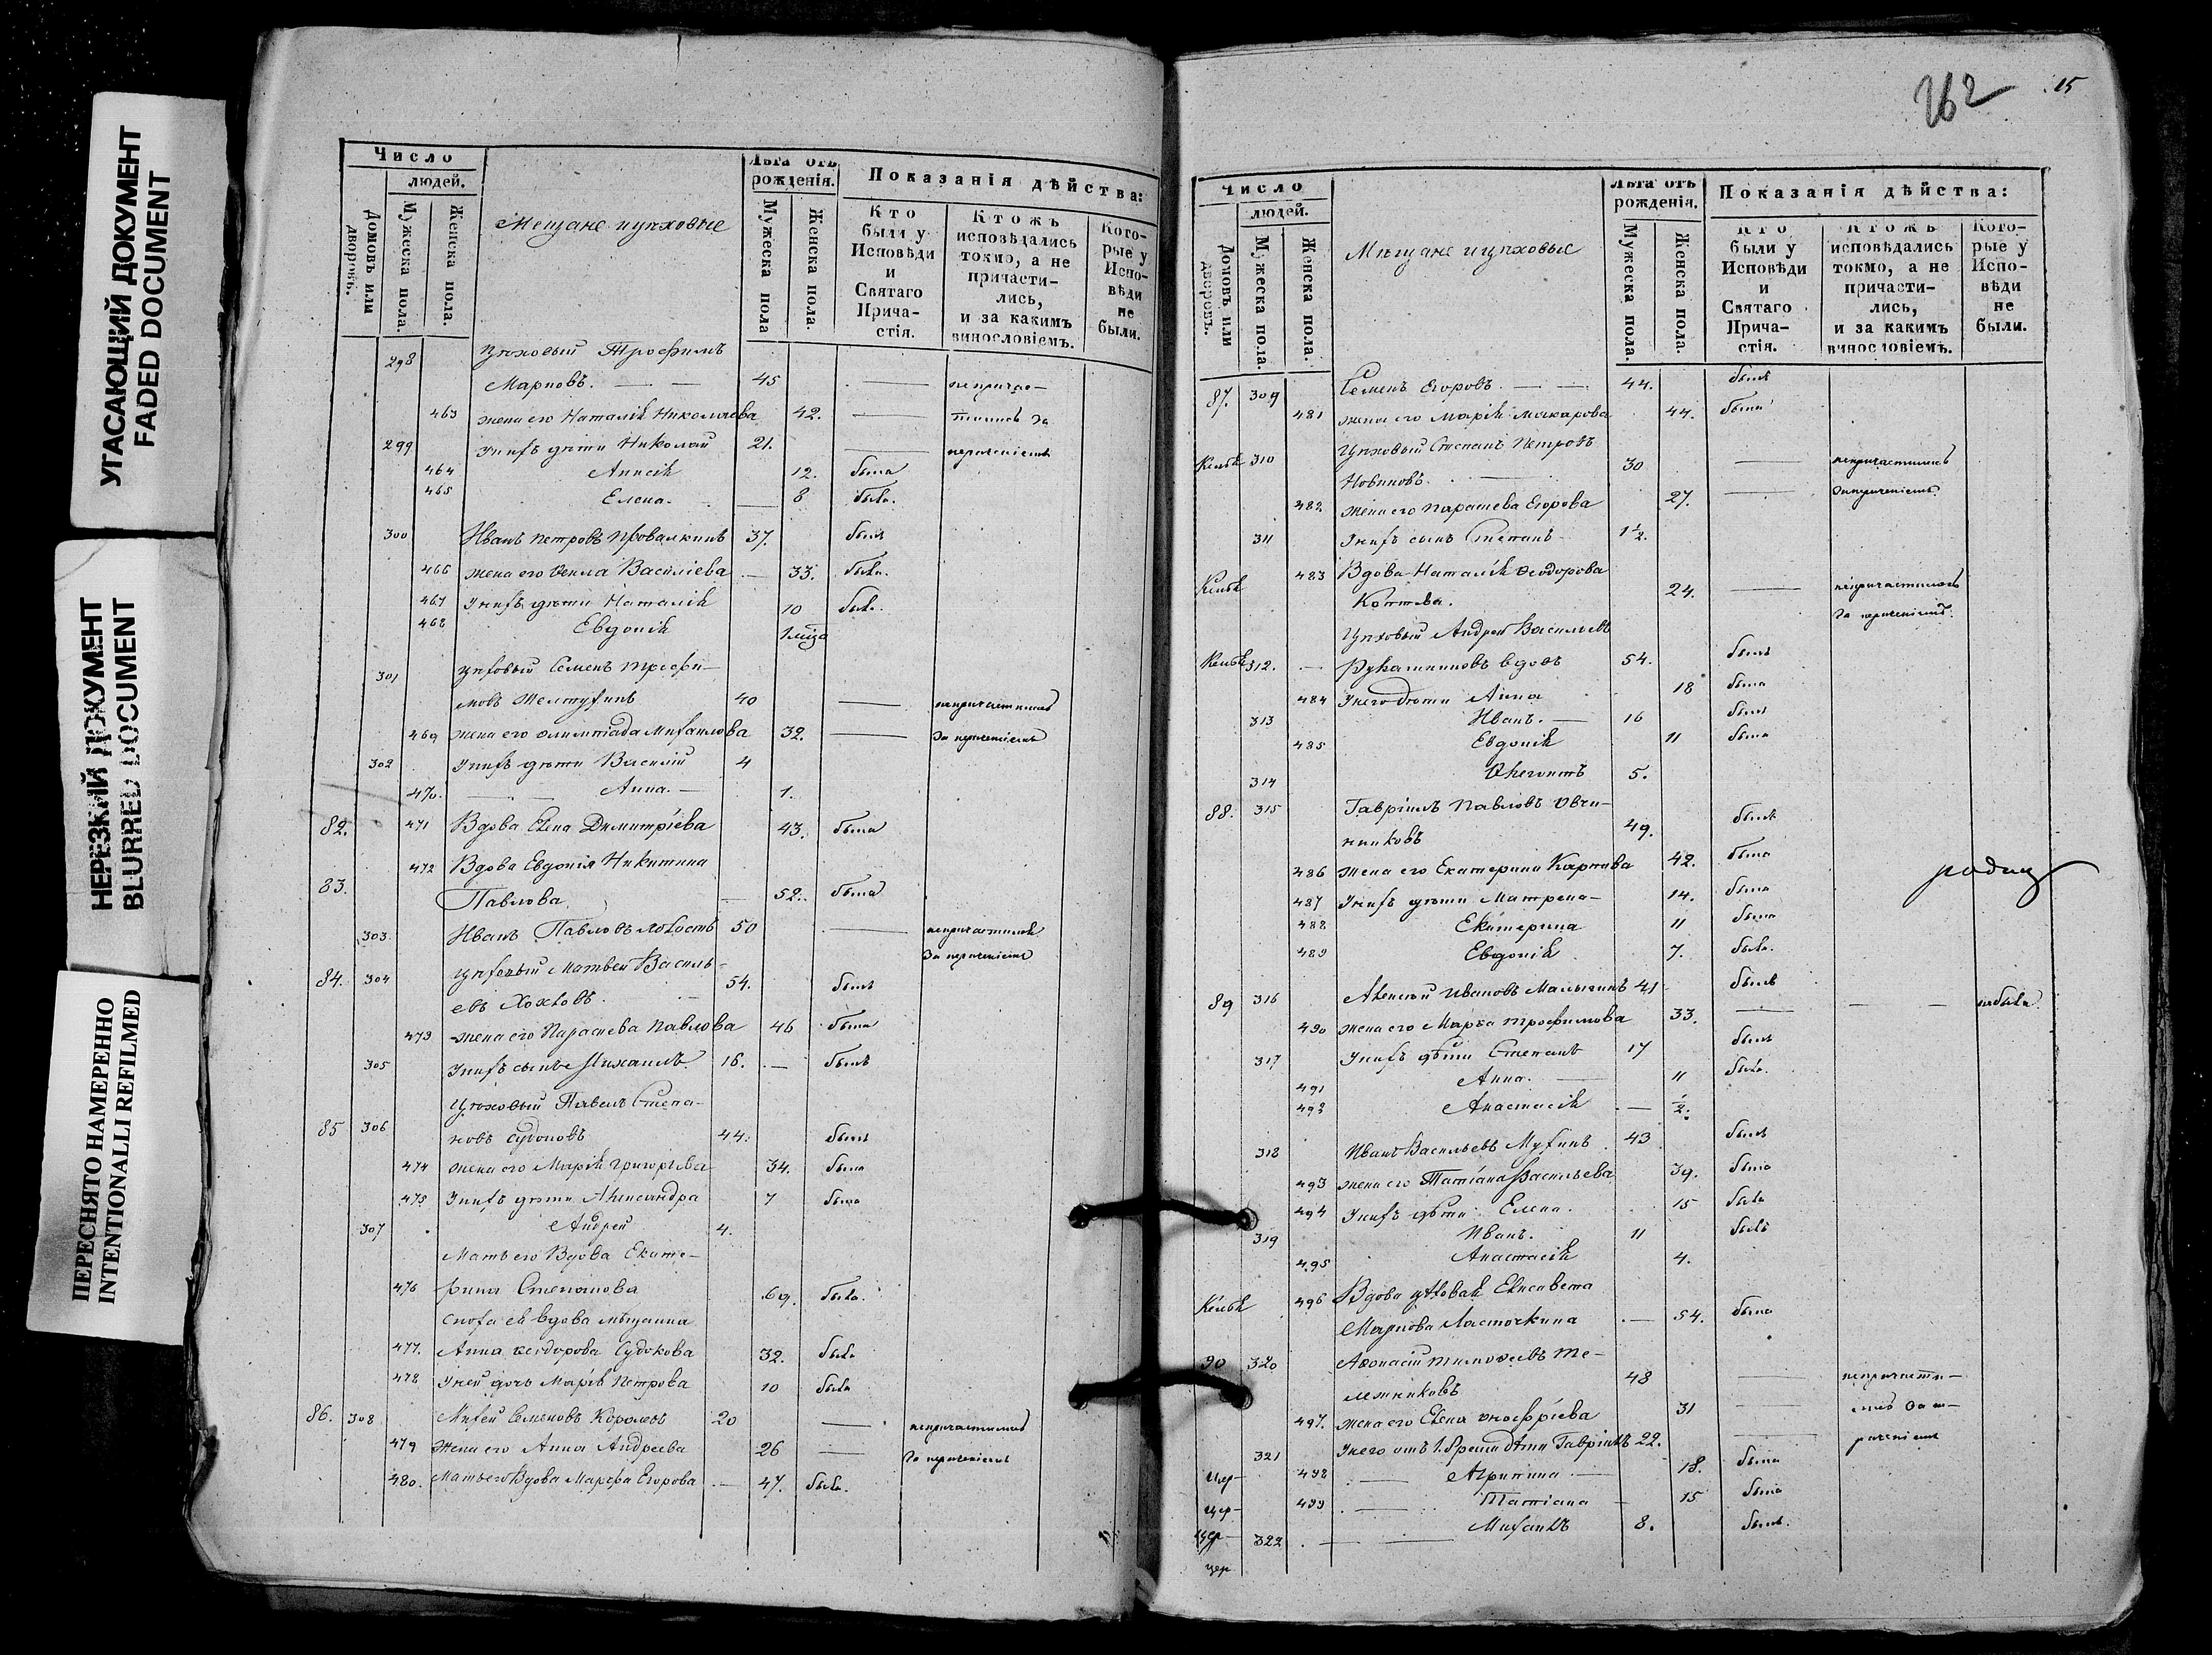 УГАСАЮЩИЙ ДОКУМЕНТ
FADED DOCUMENT
НЕРЕЗКИЙ ДОКУМЕНТ
BLURRED DOCUMENT
ПЕРЕСНЯТО НАМЕРЕННО
INTENTIONALLI REFILMED
Число людей. Лѣта отъ рожденія. Показанія дѣйства:
Домовъ или дворовъ. Мужеска пола. Женска пола. Мещане и цѣховые Мужеска пола Женска пола. Кто были у Исповѣди и Святаго Прича- стія. Ктожъ исповѣдались токмо, а не причасти- лись, и за какимъ винословіемъ. Кото- рые у Испо- вѣди не были.
298 Цѣховый Трофимъ
Марковъ. 45 непричас-
463 жена его Наталія Николаева 42. тились за
299 У нихъ дѣти Николай 21. нераченіемъ
464 Анисія 12. была
465 Елена. 8 была.
300 Иванъ Петровъ 37. былъ
466 жена его Ѳекла Василіева 33. была.
467 У нихъ дѣти Наталія 10 была.
468 Евдокія 1
301 цѣховый Семенъ Трофи-
мовъ 40 непричастились
469 жена его Олимпіада Михаилова 32. за нераченіемъ
302 У нихъ дѣти Василій 4
470. Анна. 1.
82. 471 Вдова Елена Димитріева 43. была
83. 472 Вдова Евдокія Никитина
Павлова 52. была
303 Иванъ Павловъ 50 непричастился
за нераченіемъ
84. 304 цѣховый Матвей Василь-
евъ Хохловъ. 54. былъ
473 жена его Параскева Павлова 46 была
305 У нихъ сынъ Михаилъ 16. былъ
Цѣховый Павелъ Степа-
85 306 новъ Судоковъ 44. былъ
474 жена его Марія Григорьева 34. была
475 У нихъ дѣти Александра 7 была
307 Андрей 4.
Мать его Вдова Екате-
476 рина Степанова 69. была.
сноха ей вдова мѣщанка
477. Анна Ѳеодорова Судокова 32. была
478 У ней дочь Марія Петрова 10 была
86. 308 Михей Семеновъ Королевъ 20 непричастились
479 Жена его Анна Андреева 26 за нераченіемъ
480. Мать его Вдова Марѳа Егорова 47. была.
262 15
Число людей. Лѣта отъ рожденія. Показанія дѣйства:
Домовъ или дворовъ. Мужеска пола. Женска пола. Мещане и цѣховые Мужеска пола. Женска пола. Кто были у Исповѣди и Святаго Прича- стія. Ктожъ исповѣдались токмо, а не причасти- лись, и за какимъ винословіемъ. Кото- рые у Испо- вѣди не были.
87. 309 Семенъ Егоровъ. 44. былъ
481 жена его Марія Макарова 44. была
Цѣховый Степанъ Петровъ
Келья 310 Новиковъ. 30 непричастились
482 жена его Параскева Егорова 27. за нераченіемъ
311 У нихъ сынъ Степанъ 1½.
483 Вдова Наталія Ѳеодорова
Келья Коптева. 24. непричастилась
за нераченіемъ.
Цѣховый Андрей Васильевъ
Келья 312. Рукавишниковъ вдовъ 54. былъ
484 У него дѣти Анна 18 была
313 Иванъ. 16 былъ
485 Евдокія 11 была
314 Ѳеогностъ 5.
88. 315 Гавріилъ Павловъ Овчи-
нниковъ 49. былъ
486 Жена его Екатерина Карпова 42. была
487 У нихъ дѣти Матрена 14. была
488 Екатерина 11 была
489 Евдокія. 7. была.
89 316 Алексѣй Ивановъ Малыгинъ 41 былъ
490 жена его Марѳа Трофимова 33. не была
317 У нихъ дѣти Степанъ 17 былъ
491 Анна. 11 была.
492 Анастасія ½.
318 Иванъ Васильевъ Мухинъ 43 былъ
493 жена его Татіана Васильева 39. была
494 У нихъ дѣти Елена. 15 была
319 Иванъ. 11 былъ
495 Анастасія 4.
Келья 496 Вдова цѣховая Елисавета
Маркова Ласточкина 54. была
90 320 Аѳонасій Тимоѳеевъ Те-
лежниковъ 48 непричасти-
497. жена его Елена Онофріева 31 лись за не-
321 У него отъ 1. брака дѣти Гавріилъ 22. раченіемъ
498 Агрипина 18. была
499 Татіана 15 была
322 Михаилъ 8. былъ.
цер-
цер-
цер-
цер